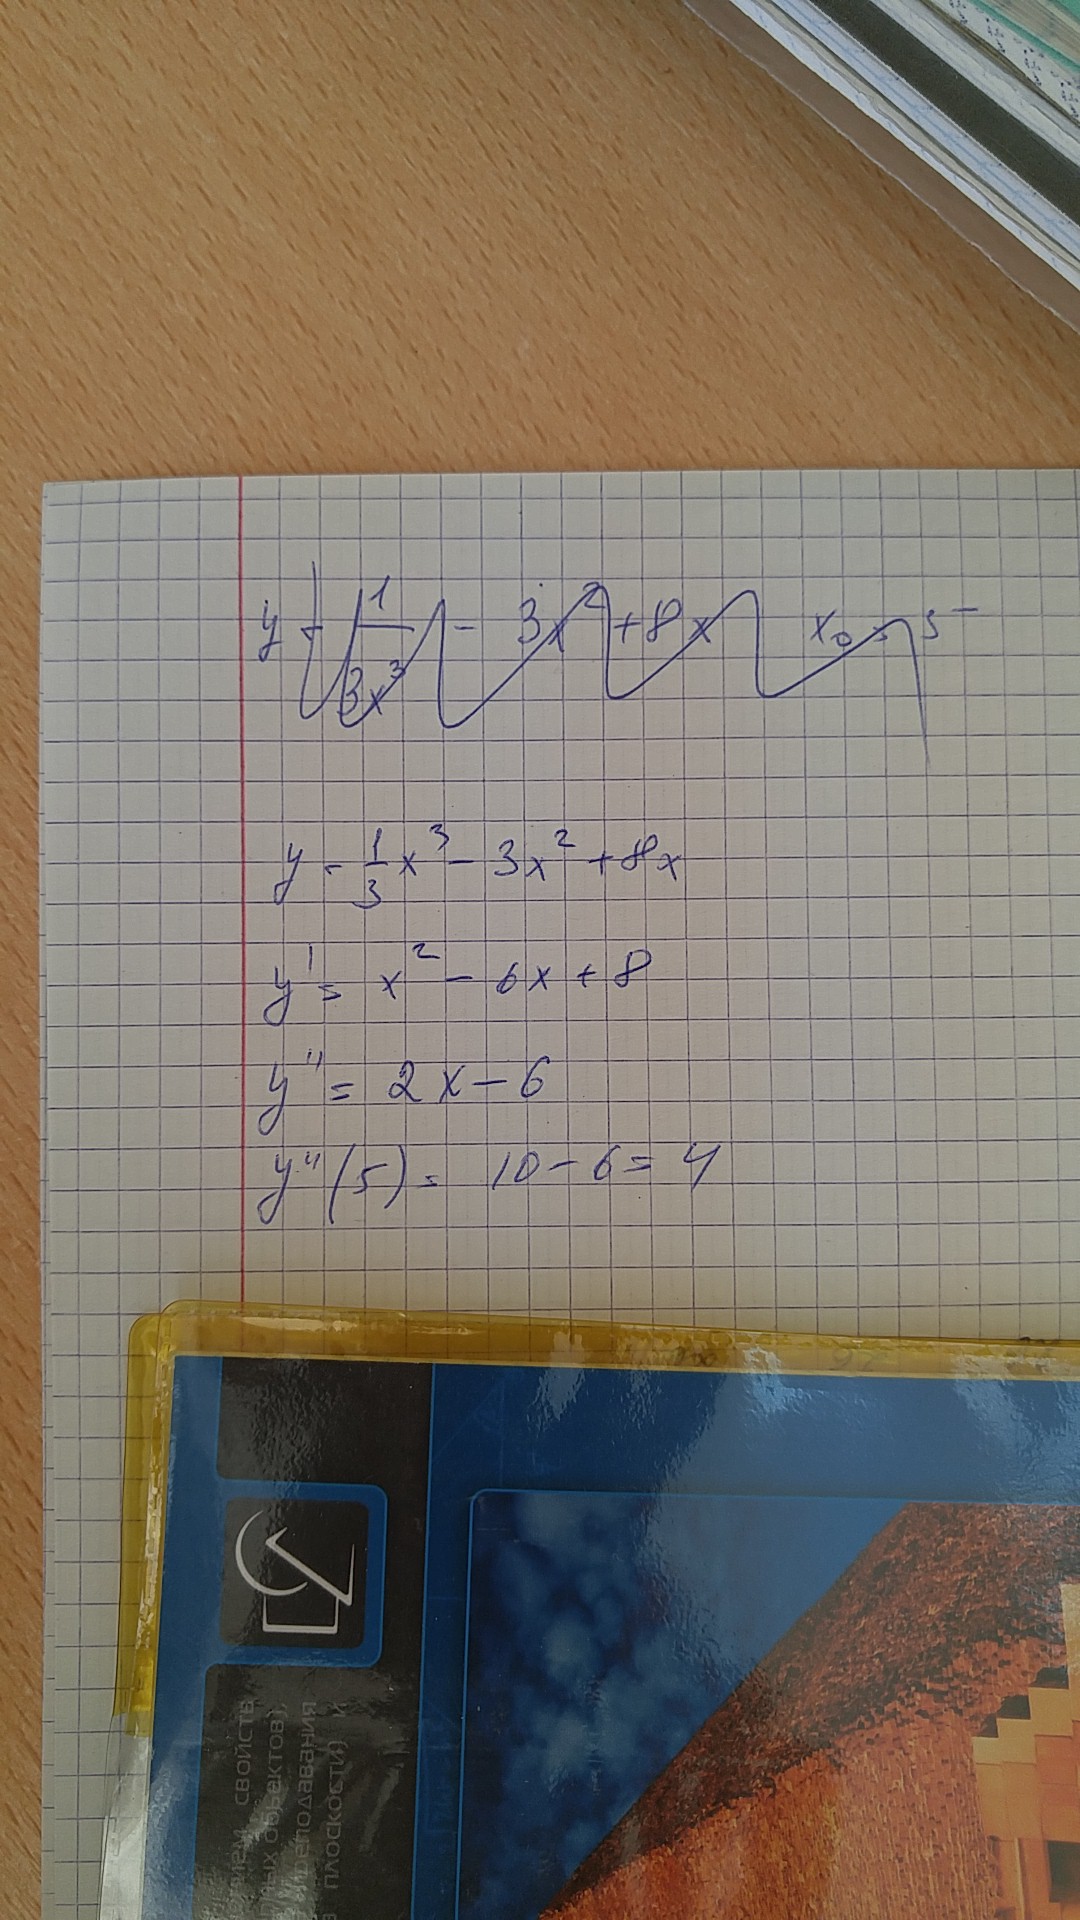 y = 1/3x³ - 3x² + 8x x₀ = 5
y = 1/3 x³ - 3x² + 8x
y' = x² - 6x + 8
y'' = 2x - 6
y'' (5) = 10 - 6 = 4
СВОЙСТВ
ОБЪЕКТОВ),
ПЛОСКОСТИ) И